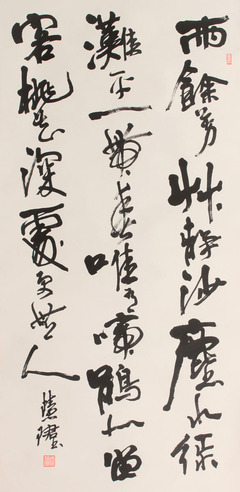 雨餘芳艸静沙塵水緑
灘平一帶春唯有啼鵑似留
客桃花深處更無人
慧珺